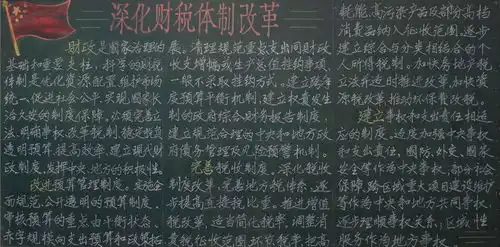 深化财税体制改革
财政是国家治理的
基础和重要支柱，科学的财税
体制是优化资源配置、维护市场
统一、促进社会公平、实现国家长
治久安的制度保障。必须完善立
法、明确事权、改革税制、稳定税负、
透明预算、提高效率，建立现代财
政制度，发挥中央、地方的积极性。
改进预算管理制度。实施全
面规范、公开透明的预算制度。
审核预算的重点由平衡状态、
赤字规模向支出预算和政策拓
展。清理规范重点支出同财政
收支增幅或生产总值挂钩事项，
一般不采取挂钩方式。建立跨年
度预算平衡机制，建立权责发生
制的政府综合财务报告制度，
建立规范合理的中央和地方政
府债务管理及风险预警机制。
完善税收制度。深化税收
制度改革，完善地方税体系，逐
步提高直接税比重。推进增值
税改革，适当简化税率。调整消
费税征收范围、环节、税率，把高
耗能、高污染产品及部分高档
消费品纳入征收范围。逐步
建立综合与分类相结合的个
人所得税制。加快房地产税
立法并适时推进改革，加快资
源税改革，推动环保费改税。
建立事权和支出责任相适
应的制度。适度加强中央事权
和支出责任，国防、外交、国家
安全等作为中央事权；部分社会
保障、跨区域重大项目建设维护
等作为中央和地方共同事权，
逐步理顺事权关系；区域性
服务作为地方事权。